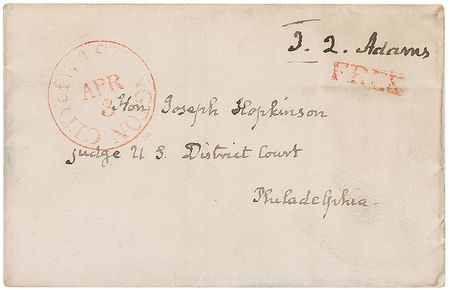 J. Q. Adams
FREE
CITY of WASHINGTON
APR
3
Hon Joseph Hopkinson
Judge U S. District Court
Philadelphia.